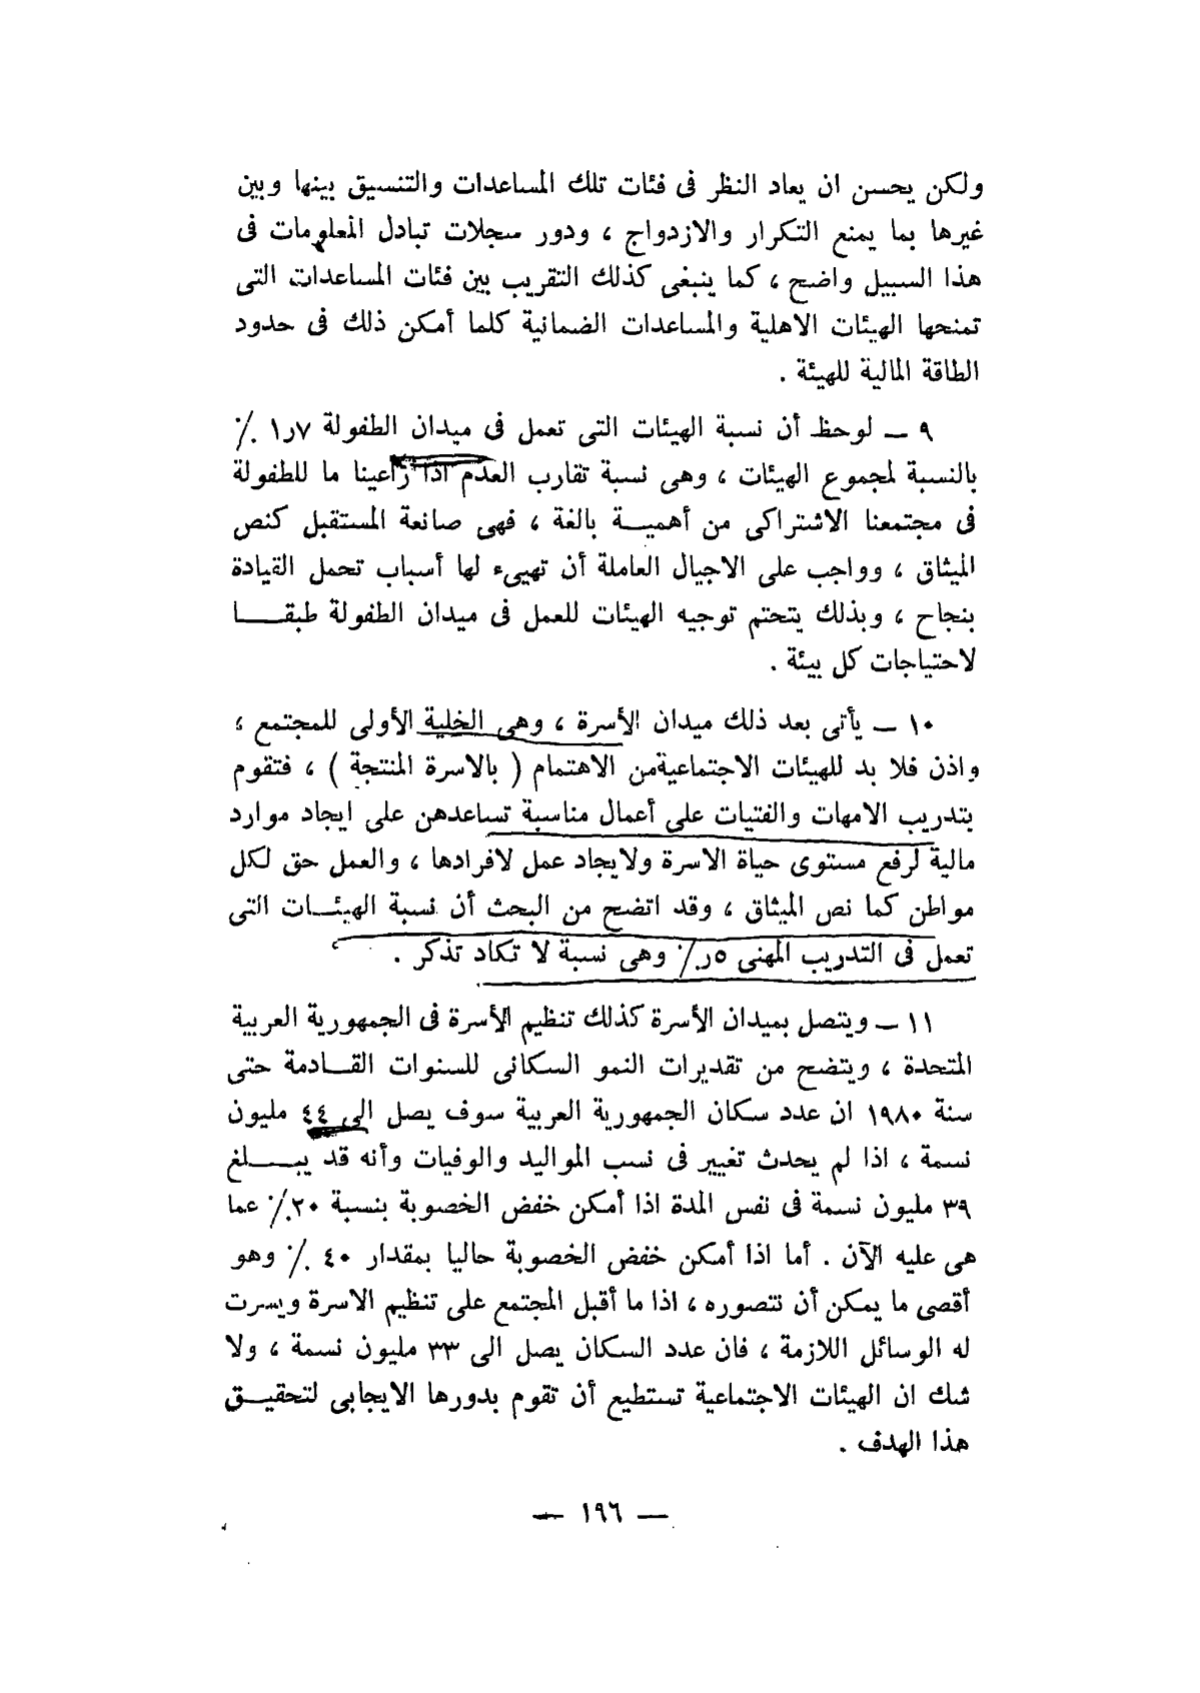 ولكن يحسن ان يعاد النظر فى فئات تلك المساعدات والتنسيق بينها وبين
غيرها بما يمنع التكرار والازدواج ، ودور سجلات تبادل المعلومات فى
هذا السبيل واضح ، كما ينبغى كذلك التقريب بين فئات المساعدات التى
تمنحها الهيئات الاهلية والمساعدات الضمانية كلما أمكن ذلك فى حدود
الطاقة المالية للهيئة .
٩ — لوحظ أن نسبة الهيئات التى تعمل فى ميدان الطفولة ١٫٧ ٪
بالنسبة لمجموع الهيئات ، وهى نسبة تقارب العدم اذا راعينا ما للطفولة
فى مجتمعنا الاشتراكى من أهميــة بالغة ، فهى صانعة المستقبل كنص
الميثاق ، وواجب على الاجيال العاملة أن تهيىء لها أسباب تحمل القيادة
بنجاح ، وبذلك يتحتم توجيه الهيئات للعمل فى ميدان الطفولة طبقــــا
لاحتياجات كل بيئة .
١٠ — يأتى بعد ذلك ميدان الأسرة ، وهى الخلية الأولى للمجتمع ،
واذن فلا بد للهيئات الاجتماعية من الاهتمام ( بالاسرة المنتجة ) ، فتقوم
بتدريب الامهات والفتيات على أعمال مناسبة تساعدهن على ايجاد موارد
مالية لرفع مستوى حياة الاسرة ولايجاد عمل لافرادها ، والعمل حق لكل
مواطن كما نص الميثاق ، وقد اتضح من البحث أن نسبة الهيئــات التى
تعمل فى التدريب المهنى ٥ر٪ وهى نسبة لا تكاد تذكر .
١١ — ويتصل بميدان الأسرة كذلك تنظيم الأسرة فى الجمهورية العربية
المتحدة ، ويتضح من تقديرات النمو السكانى للسنوات القــادمة حتى
سنة ١٩٨٠ ان عدد سكان الجمهورية العربية سوف يصل الى ٤٤ مليون
نسمة ، اذا لم يحدث تغيير فى نسب المواليد والوفيات وأنه قد يبــــلغ
٣٩ مليون نسمة فى نفس المدة اذا أمكن خفض الخصوبة بنسبة ٢٠٪ عما
هى عليه الآن . أما اذا أمكن خفض الخصوبة حاليا بمقدار ٤٠ ٪ وهو
أقصى ما يمكن أن نتصوره ، اذا ما أقبل المجتمع على تنظيم الاسرة ويسرت
له الوسائل اللازمة ، فان عدد السكان يصل الى ٣٣ مليون نسمة ، ولا
شك ان الهيئات الاجتماعية تستطيع أن تقوم بدورها الايجابى لتحقيــق
هذا الهدف .
— ١٩٦ —